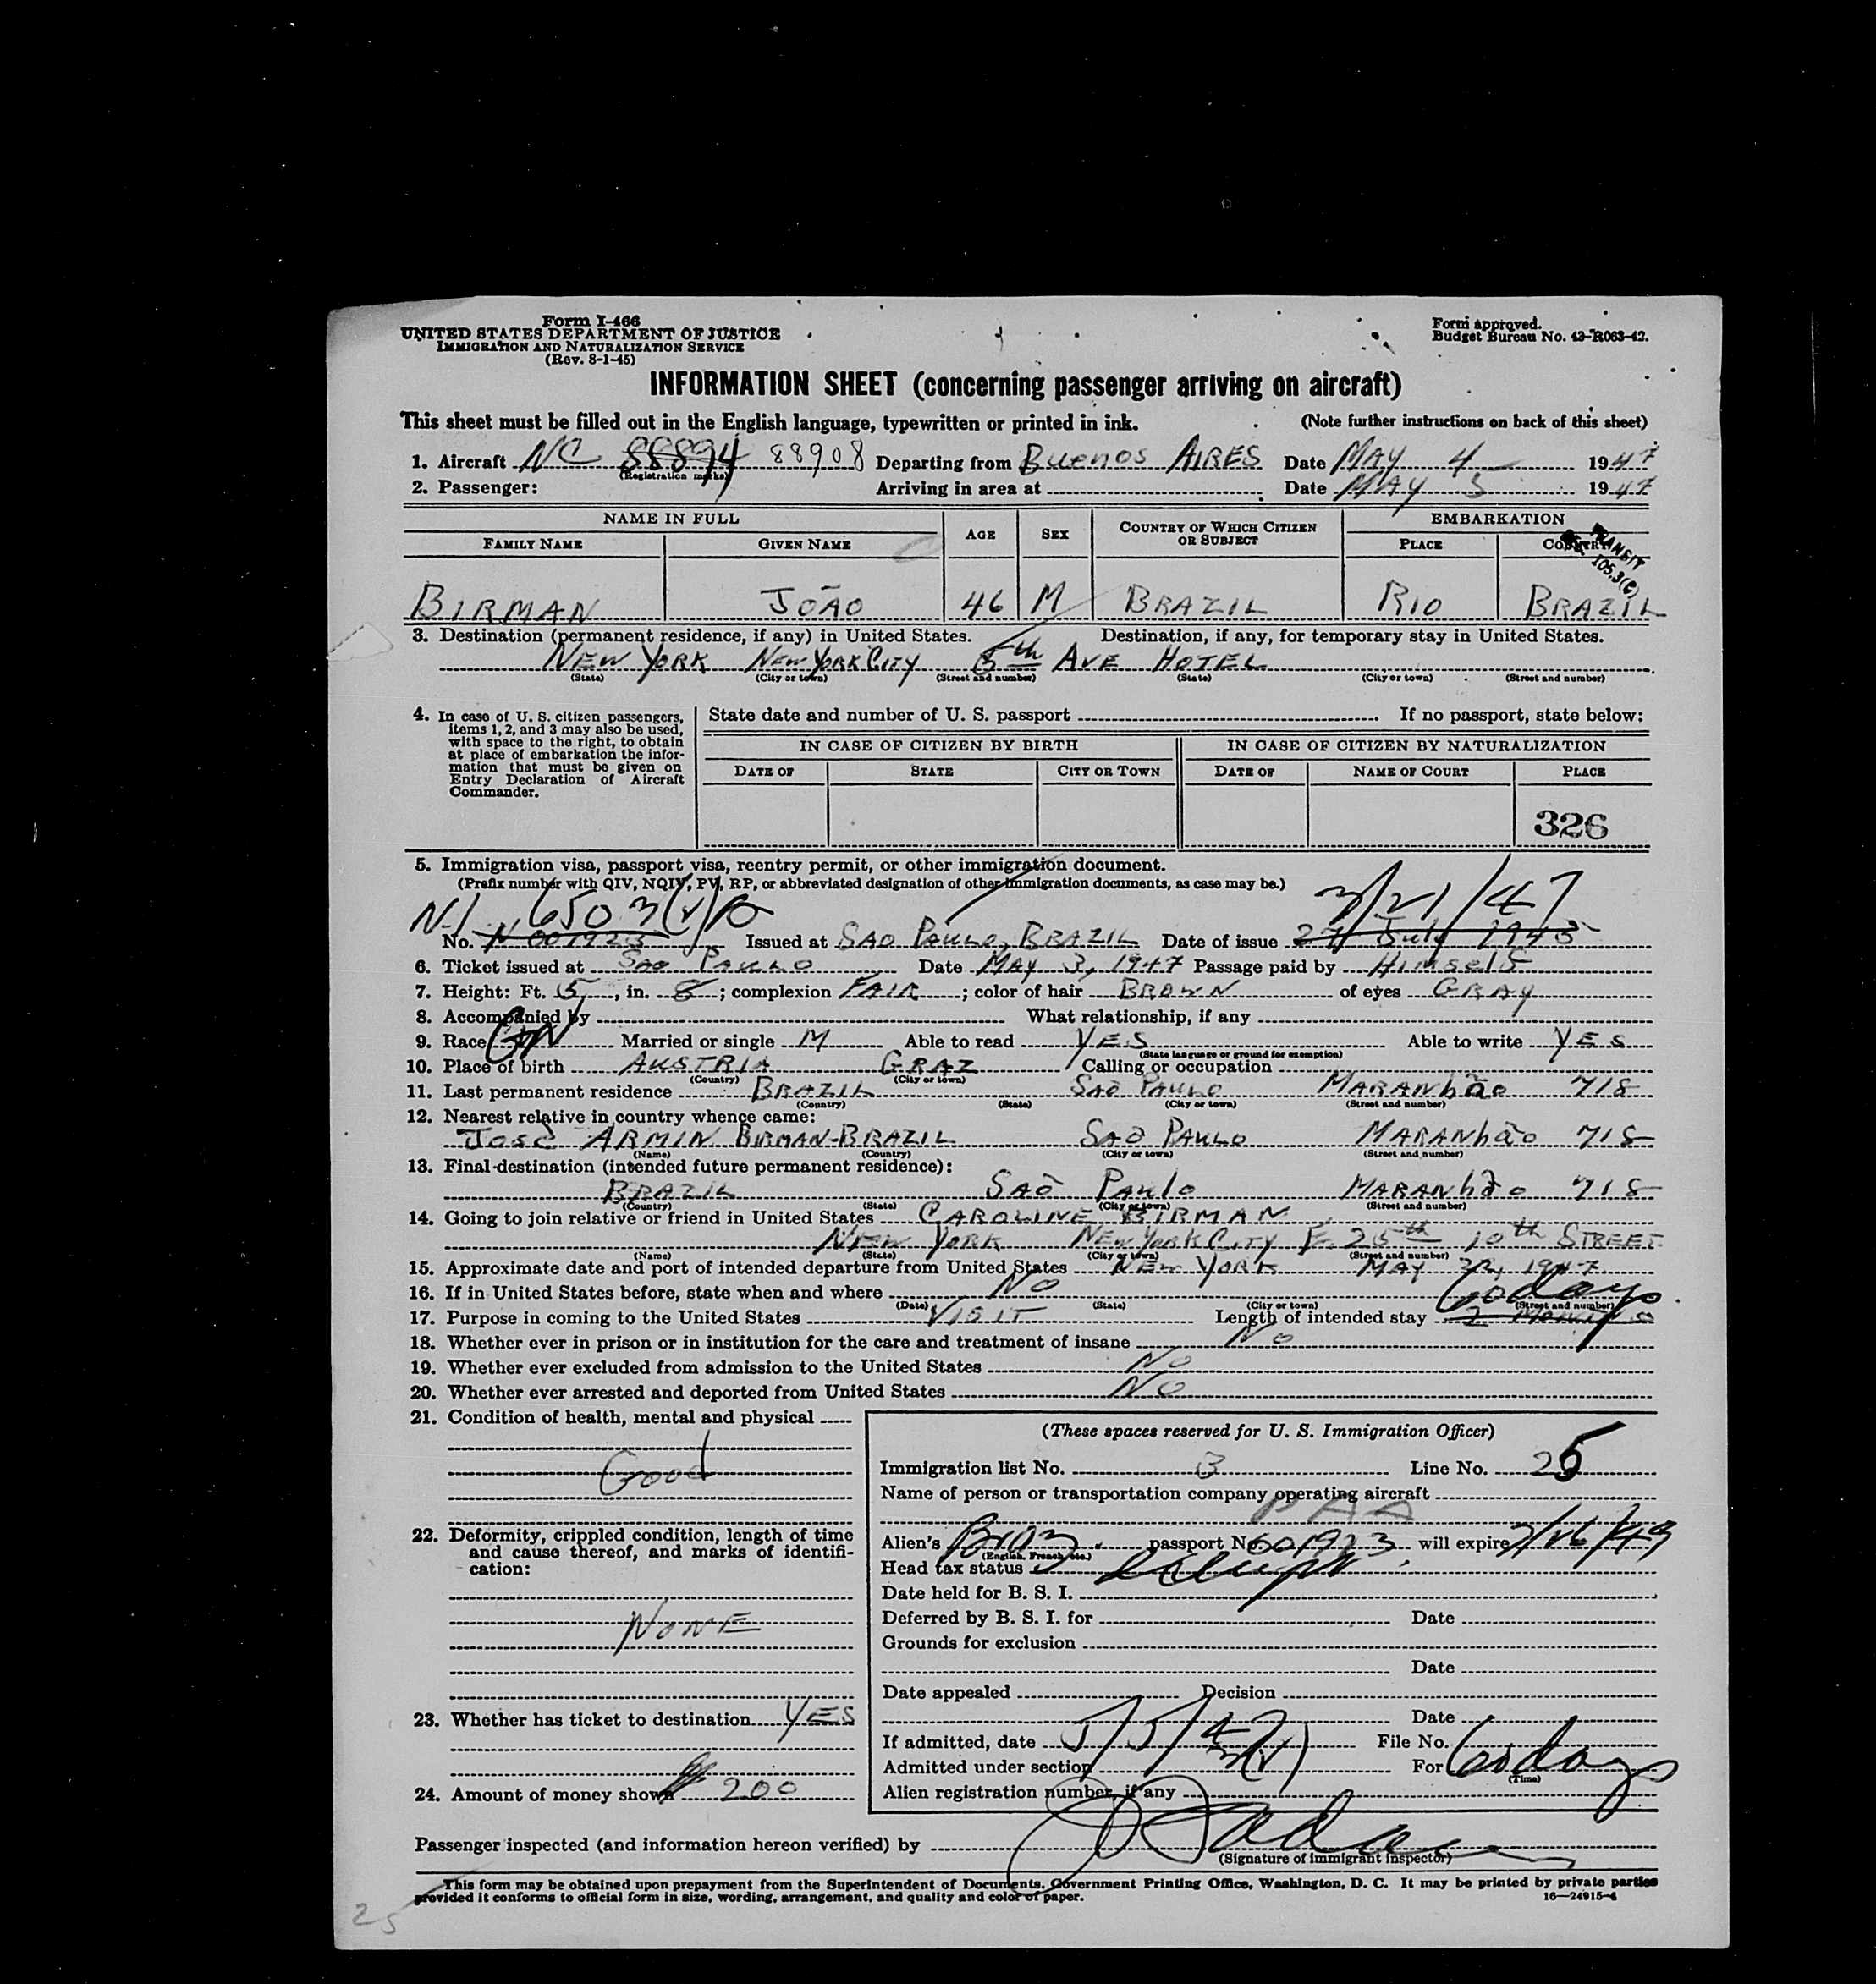 Form I-466
UNITED STATES DEPARTMENT OF JUSTICE
IMMIGRATION AND NATURALIZATION SERVICE
(Rev. 8-1-45)
Form approved.
Budget Bureau No. 43-R063-42.
INFORMATION SHEET (concerning passenger arriving on aircraft)
This sheet must be filled out in the English language, typewritten or printed in ink. (Note further instructions on back of this sheet)
1. Aircraft NC 88894 88908 Departing from Buenos AIRES Date MAY 4 1947
(Registration marks)
2. Passenger: Arriving in area at Date MAY 5 1947
NAME IN FULL AGE SEX COUNTRY OF WHICH CITIZEN OR SUBJECT EMBARKATION
FAMILY NAME GIVEN NAME PLACE COUNTRY
TRANSIT
105.3(e)
BIRMAN JOÃO 46 M BRAZIL RIO BRAZIL
3. Destination (permanent residence, if any) in United States. Destination, if any, for temporary stay in United States.
NEW YORK NEW YORK CITY 5th AVE HOTEL
(State) (City or town) (Street and number) (State) (City or town) (Street and number)
4. In case of U. S. citizen passengers, items 1, 2, and 3 may also be used, with space to the right, to obtain at place of embarkation the information that must be given on Entry Declaration of Aircraft Commander.
State date and number of U. S. passport If no passport, state below:
IN CASE OF CITIZEN BY BIRTH IN CASE OF CITIZEN BY NATURALIZATION
DATE OF STATE CITY OR TOWN DATE OF NAME OF COURT PLACE
326
5. Immigration visa, passport visa, reentry permit, or other immigration document.
(Prefix number with QIV, NQIV, PV, RP, or abbreviated designation of other immigration documents, as case may be.)
6503 3/21/47
No. N 001923 Issued at SAO PAULO, BRAZIL Date of issue 27 July 1943
6. Ticket issued at SAO PAULO Date MAY 3, 1947 Passage paid by Himself
7. Height: Ft. 5, in. 8; complexion FAIR; color of hair BROWN of eyes GRAY
8. Accompanied by What relationship, if any
9. Race Married or single M Able to read YES Able to write YES
(State language or ground for exemption)
10. Place of birth AUSTRIA GRAZ Calling or occupation
(Country) (City or town)
11. Last permanent residence BRAZIL SAÕ PAULO MARANhÃo 718
(Country) (State) (City or town) (Street and number)
12. Nearest relative in country whence came:
JOSE ARMIN BIRMAN-BRAZIL SAÕ PAULO MARANhÃo 718
(Name) (Country) (City or town) (Street and number)
13. Final destination (intended future permanent residence):
BRAZIL SAÕ PAulo MARANhÃo 718
(Country) (State) (City or town) (Street and number)
14. Going to join relative or friend in United States CAROLINE BIRMAN
NEW YORK NEW YORK CITY E. 25th 10th STREET
(Name) (State) (City or town) (Street and number)
15. Approximate date and port of intended departure from United States NEW YORK MAY 1947
16. If in United States before, state when and where NO
(Date) (State) (City or town) (Street and number)
60 days
17. Purpose in coming to the United States VISIT Length of intended stay 2 MONTHS
18. Whether ever in prison or in institution for the care and treatment of insane No
19. Whether ever excluded from admission to the United States No
20. Whether ever arrested and deported from United States NO
21. Condition of health, mental and physical
Good
22. Deformity, crippled condition, length of time and cause thereof, and marks of identification:
NONE
23. Whether has ticket to destination YES
24. Amount of money shown $ 200
(These spaces reserved for U. S. Immigration Officer)
Immigration list No. 3 Line No. 25
Name of person or transportation company operating aircraft
PAA
Alien's Braz. passport No. 601923 will expire
(English, French, etc.)
Head tax status exempt
Date held for B. S. I.
Deferred by B. S. I. for Date
Grounds for exclusion
Date
Date appealed Decision
Date
If admitted, date 5/5/47 File No.
Admitted under section 3(v) For 60 days
(Time)
Alien registration number, if any
Passenger inspected (and information hereon verified) by
(Signature of immigrant inspector)
This form may be obtained upon prepayment from the Superintendent of Documents, Government Printing Office, Washington, D. C. It may be printed by private parties
provided it conforms to official form in size, wording, arrangement, and quality and color of paper. 16—24915-4
25